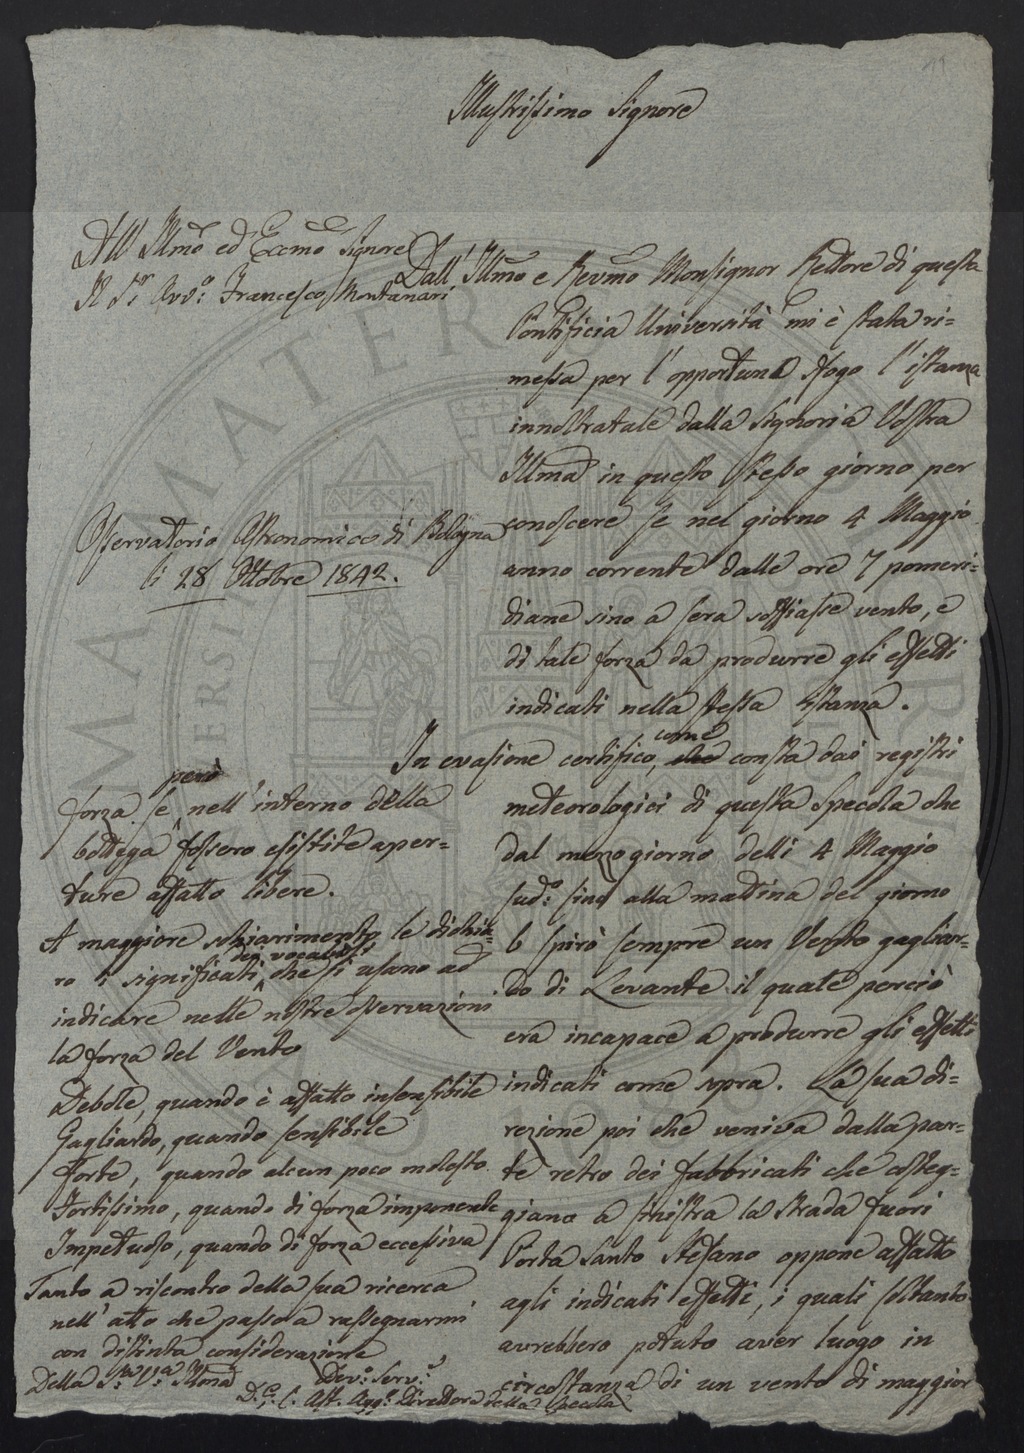 Illustrissimo Signore
All' Illmo ed Eccmo Signore
Il Sr Avv.o Francesco Montanari
Osservatorio Astronomico di Bologna
li 28 Ottobre 1842.
Dall' Illmo e Revmo Monsignor Rettore di questa
Pontificia Università mi è stata ri=
messa per l'opportuno sfogo l'istanza
innoltratale dalla Signoria Vostra
Illma in questo stesso giorno per
conoscere se nel giorno 4 Maggio
anno corrente dalle ore 7 pomeri=
diane sino a sera soffiasse vento, e
di tale forza da produrre gli effetti
indicati nella stessa Istanza.
In evasione certifico, come consta dai registri
meteorologici di questa Specola che
dal mezzogiorno delli 4 Maggio
sud.o sino alla mattina del giorno
6 spirò sempre un Vento gagliar=
do di Levante il quale perciò
era incapace a produrre gli effetti
indicati come sopra. La sua di=
rezione poi che veniva dalla par=
te retro dei fabbricati che costeg=
giano a sinistra la strada fuori
Porta Santo Stefano oppone affatto
agli indicati effetti, i quali soltanto
avrebbero potuto aver luogo in
circostanza di un vento di maggior
però
forza se nell'interno della
bottega fossero esistite aper=
ture affatto libere.
A maggiore schiarimento le dichia=
dei vocaboli
ro i significati che si usano ad
indicare nelle nostre osservazioni
la forza del Vento
Debole, quando è affatto insensibile
Gagliardo, quando sensibile
Forte, quando alcun poco molesto
Fortissimo, quando di forza imponente
Impetuoso, quando di forza eccessiva
Tanto a riscontro della sua ricerca
nell'atto che passo a rassegnarmi
con distinta considerazione
Della S.a V.a Illma
Dev.o Serv.e
D.G. C. Ast. Agg.o Direttore della Specola